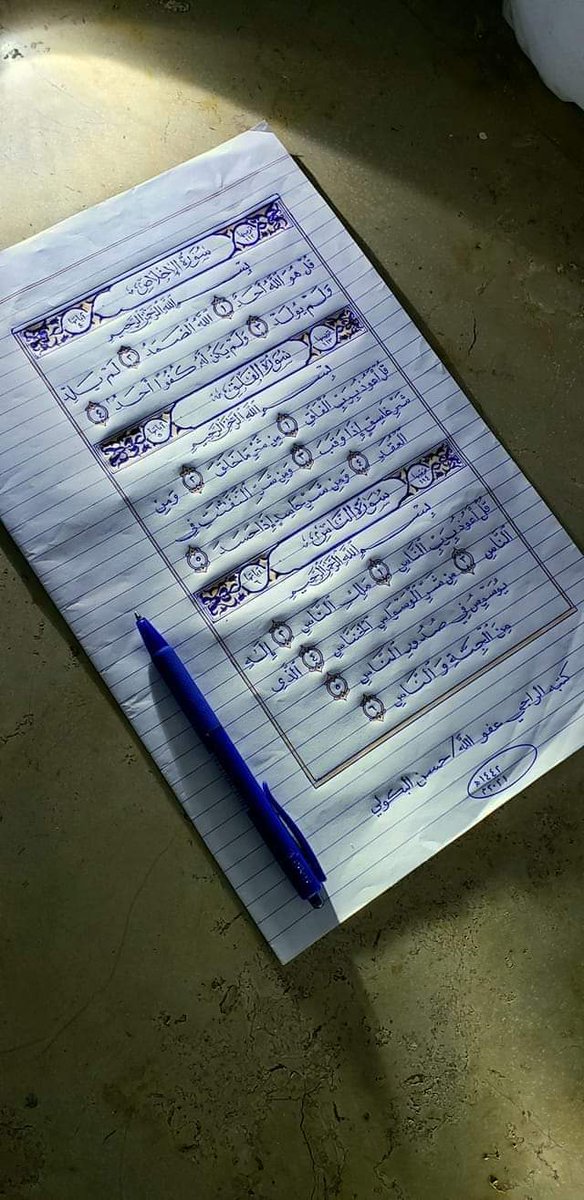 سُورَةُ الإِخْلَاصِ
بِسْمِ اللَّهِ الرَّحْمَٰنِ الرَّحِيمِ
قُلْ هُوَ اللَّهُ أَحَدٌ ١ اللَّهُ الصَّمَدُ ٢ لَمْ يَلِدْ
وَلَمْ يُولَدْ ٣ وَلَمْ يَكُن لَّهُ كُفُوًا أَحَدٌ ٤
سُورَةُ الْفَلَقِ
بِسْمِ اللَّهِ الرَّحْمَٰنِ الرَّحِيمِ
قُلْ أَعُوذُ بِرَبِّ الْفَلَقِ ١ مِن شَرِّ مَا خَلَقَ ٢ وَمِن
شَرِّ غَاسِقٍ إِذَا وَقَبَ ٣ وَمِن شَرِّ النَّفَّٰثَٰتِ فِي
الْعُقَدِ ٤ وَمِن شَرِّ حَاسِدٍ إِذَا حَسَدَ ٥
سُورَةُ النَّاسِ
بِسْمِ اللَّهِ الرَّحْمَٰنِ الرَّحِيمِ
قُلْ أَعُوذُ بِرَبِّ النَّاسِ ١ مَلِكِ النَّاسِ ٢ إِلَٰهِ
النَّاسِ ٣ مِن شَرِّ الْوَسْوَاسِ الْخَنَّاسِ ٤ الَّذِي
يُوَسْوِسُ فِي صُدُورِ النَّاسِ ٥
مِنَ الْجِنَّةِ وَالنَّاسِ ٦
كتبه الراجي عفو الله / حسن البكولي
١٤٤٢هـ
٢٠٢١م